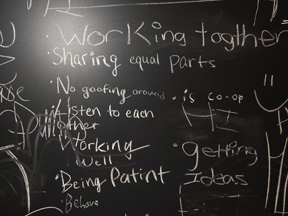 · Working togther
· Sharing equal parts
· No goofing around
· listen to each
other
· Working
Well
· Being Patint
· Behave
· is co-op
· Getting
Ideas